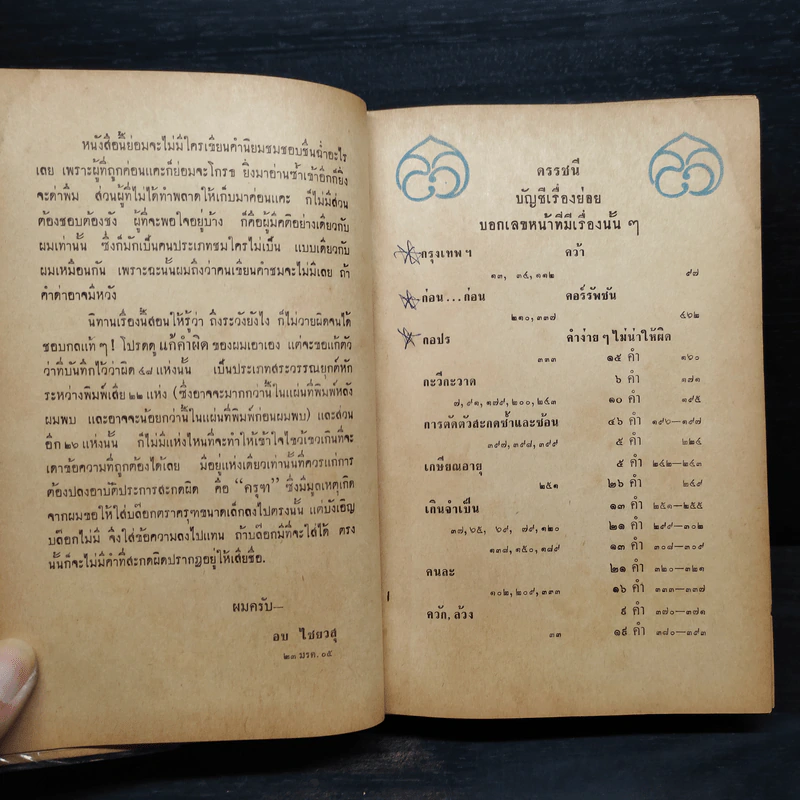 หนังสือนี้ย่อมจะไม่มีใครเขียนคำนิยมชมชอบชื่นฉ่ำอะไร
เลย เพราะผู้ที่ถูกค่อนแคะก็ย่อมจะโกรธ ยิ่งมาอ่านซ้ำเข้าอีกก็ยิ่ง
จะด่าพึม ส่วนผู้ที่ไม่ได้ทำพลาดให้เก็บมาค่อนแคะ ก็ไม่มีส่วน
ต้องชอบต้องชัง ผู้ที่จะพอใจอยู่บ้าง ก็คือผู้มีคติอย่างเดียวกับ
ผมเท่านั้น ซึ่งก็มักเป็นคนประเภทชมใครไม่เป็น แบบเดียวกับ
ผมเหมือนกัน เพราะฉะนั้นผมถึงว่าคนเขียนคำชมจะไม่มีเลย ถ้า
คำด่าอาจมีหวัง
นิทานเรื่องนี้สอนให้รู้ว่า ถึงระวังยังไง ก็ไม่วายผิดจนได้
ชอบกลแท้ ๆ! โปรดดู แก้คำผิด ของผมเอาเอง แต่จะขอแก้ตัว
ว่าที่บันทึกไว้ว่าผิด ๔๘ แห่งนั้น เป็นประเภทสระวรรณยุกต์หัก
ระหว่างพิมพ์เสีย ๒๒ แห่ง (ซึ่งอาจจะมากกว่านี้ในแผ่นที่พิมพ์หลัง
ผมพบ และอาจจะน้อยกว่านี้ในแผ่นที่พิมพ์ก่อนผมพบ) และส่วน
อีก ๒๖ แห่งนั้น ก็ไม่มีแห่งไหนที่จะทำให้เข้าใจไขว้เขวเกินที่จะ
เดาข้อความที่ถูกต้องได้เลย มีอยู่แห่งเดียวเท่านั้นที่ควรแก่การ
ต้องปลงอาบัติประการสะกดผิด คือ “ครุฑ” ซึ่งมีมูลเหตุเกิด
จากผมขอให้ใส่บล๊อกตราครุฑขนาดเล็กลงไปตรงนั้น แต่บังเอิญ
บล๊อกไม่มี จึงใส่ข้อความลงไปแทน ถ้าบล๊อกมีที่จะใส่ได้ ตรง
นั้นก็จะไม่มีคำที่สะกดผิดปรากฏอยู่ให้เสียชื่อ.
ผมครับ—
อบ ไชยวสุ
๒๓ มรค. ๐๕
ดรรชนี
บัญชีเรื่องย่อย
บอกเลขหน้าที่มีเรื่องนั้น ๆ
กรุงเทพ ฯ
๑๓, ๓๔, ๑๑๒
ก่อน...ก่อน
๒๑๐, ๓๓๗
กอปร
๓๓๓
กะวีกะวาด
๗, ๙๑, ๑๗๙, ๒๐๐, ๒๔๓
การตัดตัวสะกดซ้ำและซ้อน
๓๙๗, ๓๙๘, ๓๙๙
เกษียณอายุ
๒๕๑
เกินจำเป็น
๓๗, ๖๕, ๖๙, ๗๙, ๑๒๐
๑๓๘, ๑๕๐, ๑๘๙
คนละ
๑๐๒, ๒๐๙, ๓๓๓
ควัก, ล้วง
๓๓
คว้า
๙๗
คอร์รัพชัน
๔๖๒
คำง่าย ๆ ไม่น่าให้ผิด
๑๕ คำ ๑๖๐
๖ คำ ๑๗๑
๑๐ คำ ๑๙๕
๔๖ คำ ๑๙๖—๑๙๗
๕ คำ ๒๒๔
๕ คำ ๒๔๒—๒๔๓
๒๖ คำ ๒๔๙
๑๓ คำ ๒๕๑—๒๕๕
๒๑ คำ ๒๙๙—๓๐๒
๑๓ คำ ๓๐๘—๓๐๙
๒๑ คำ ๓๒๐—๓๒๑
๑๖ คำ ๓๓๓—๓๓๗
๙ คำ ๓๗๐—๓๗๑
๑๙ คำ ๓๘๐—๓๙๓